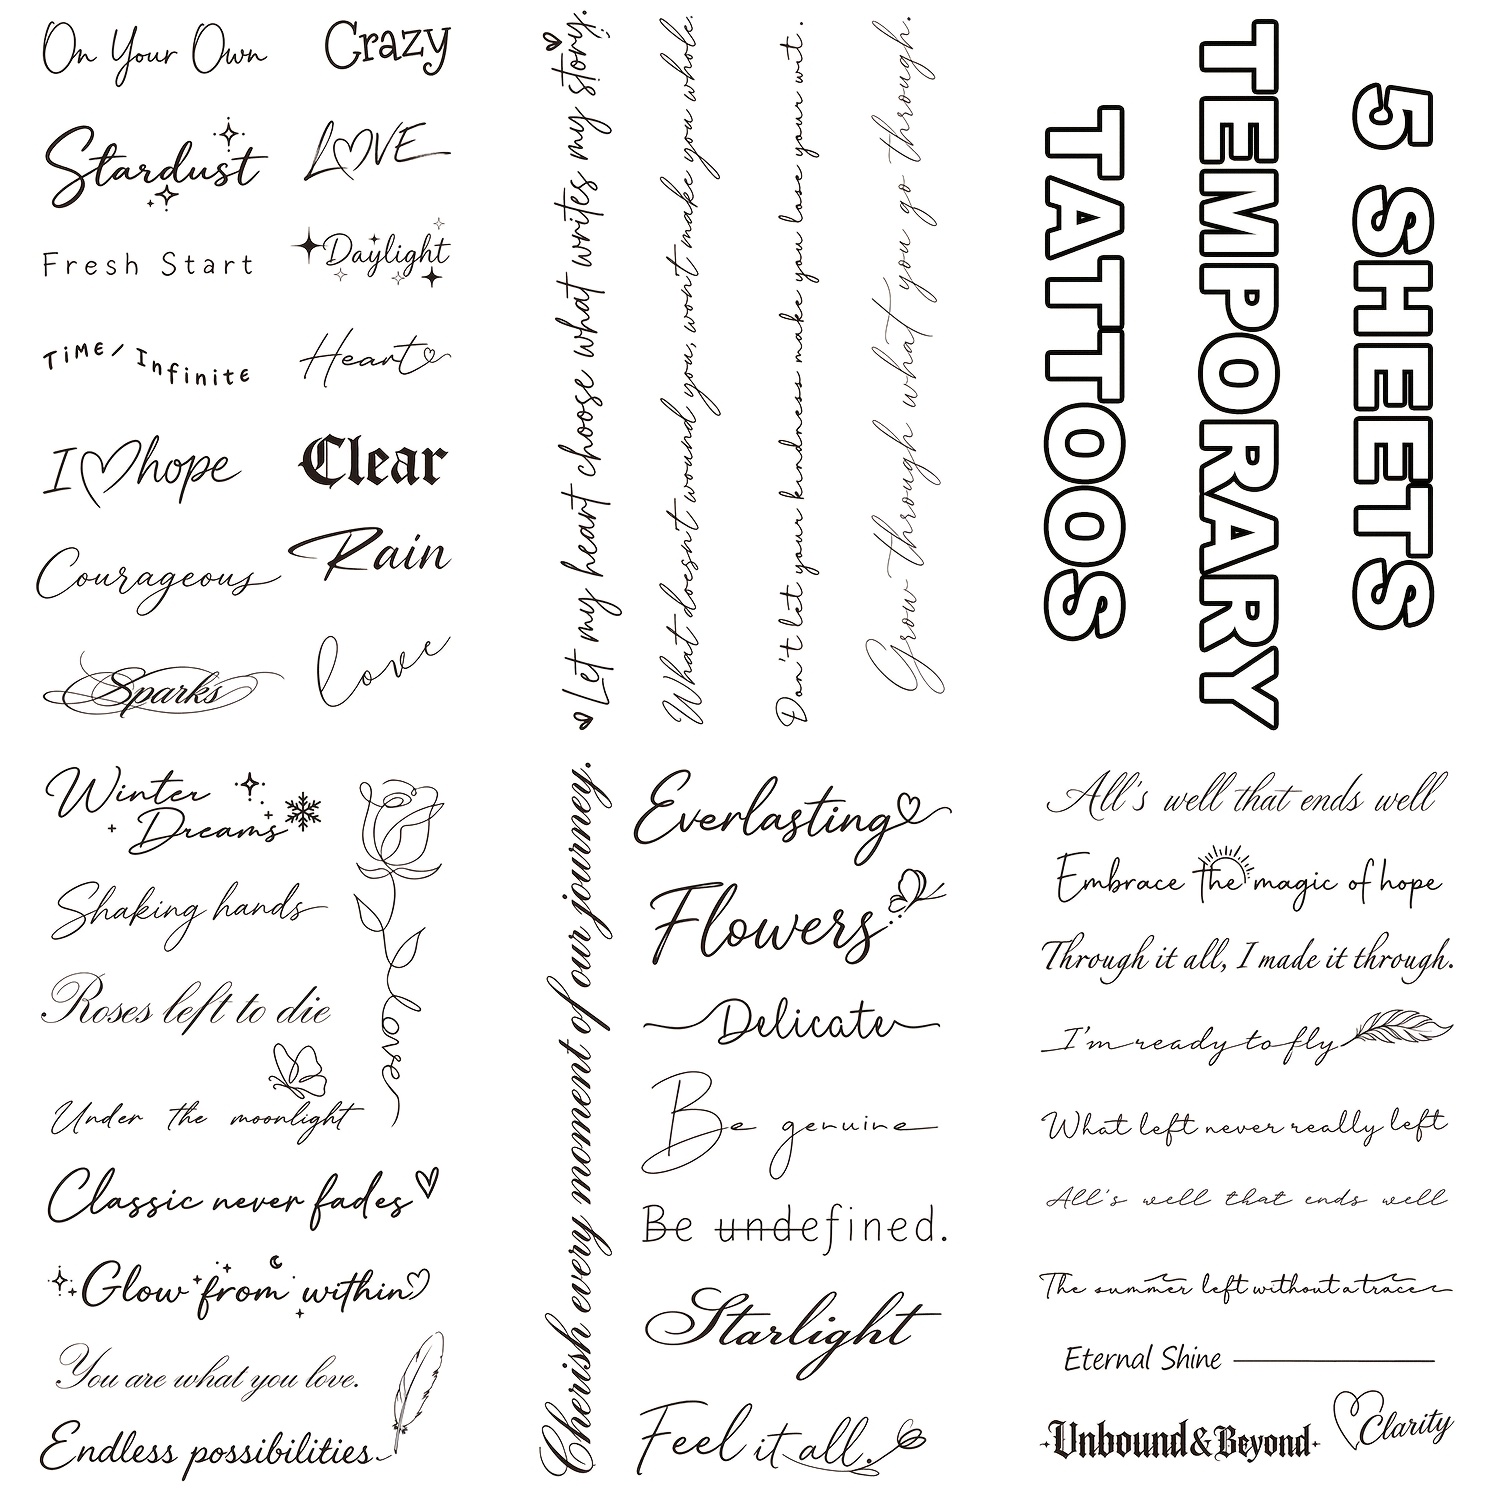 On Your Own
Crazy
Stardust
LOVE
Fresh Start
Daylight
TiME / Infinite
Heart
I hope
Clear
Courageous
Rain
Sparks
love
Let my heart choose what writes my story.
What doesn't wound you, won't make you whole.
Don't let your kindness make you lose your wit.
Grow through what you go through.
5 SHEETS
TEMPORARY
TATTOOS
Winter
Dreams
Shaking hands
Roses left to die
love
Under the moonlight
Classic never fades
Glow from within
You are what you love.
Endless possibilities.
Cherish every moment of our journey.
Everlasting
Flowers
Delicate
Be genuine
Be undefined.
Starlight
Feel it all.
All's well that ends well
Embrace the magic of hope
Through it all, I made it through.
I'm ready to fly
What left never really left
All's well that ends well
The summer left without a trace
Eternal Shine
Unbound & Beyond
Clarity